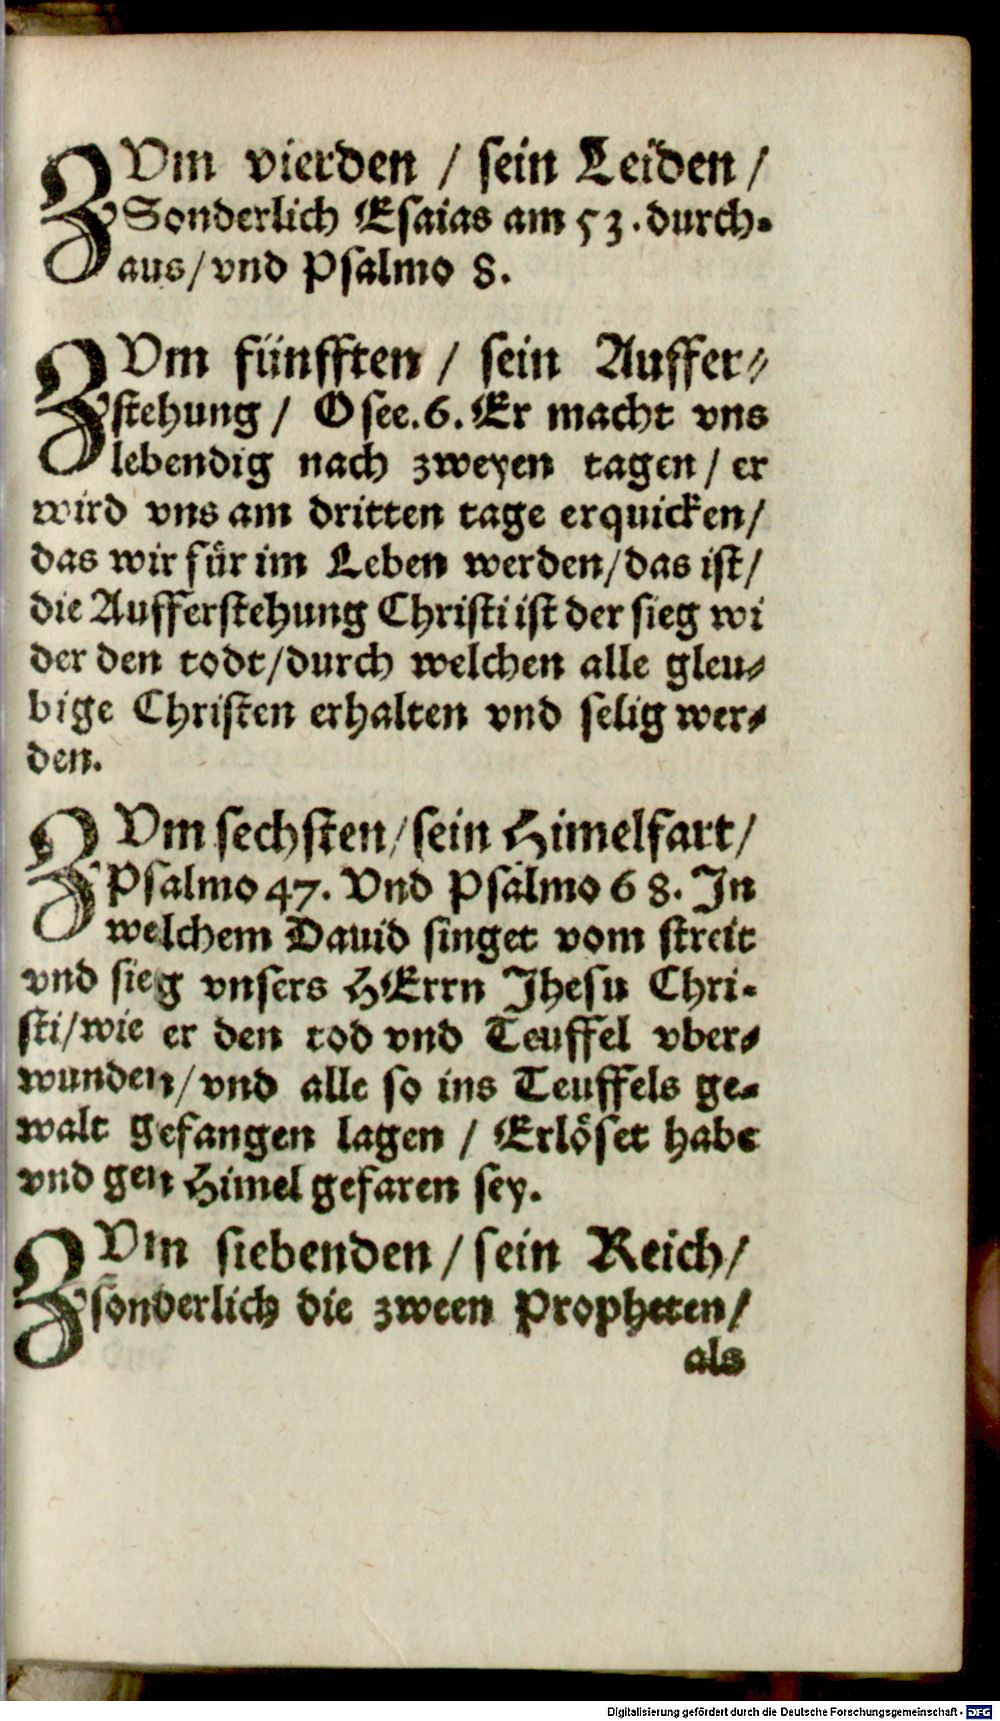 ZVm vierden / sein Leiden /
Sonderlich Esaias am 53. durch-
aus / vnd Psalmo 8.
ZVm fünfften / sein Auffer-
stehung / Osee. 6. Er macht vns
lebendig nach zweyen tagen / er
wird vns am dritten tage erquicken /
das wir für im Leben werden / das ist /
die Aufferstehung Christi ist der sieg wi
der den todt / durch welchen alle gleu-
bige Christen erhalten vnd selig wer-
den.
ZVm sechsten / sein Himelfart /
Psalmo 47. Vnd Psalmo 68. In
welchem Dauid singet vom streit
vnd sieg vnsers HErrn Jhesu Chri-
sti / wie er den tod vnd Teuffel vber-
wunden / vnd alle so ins Teuffels ge-
walt gefangen lagen / Erlöset habe
vnd gen Himel gefaren sey.
ZVm siebenden / sein Reich /
sonderlich die zween Propheten /
als
Digitalisierung gefördert durch die Deutsche Forschungsgemeinschaft - DFG